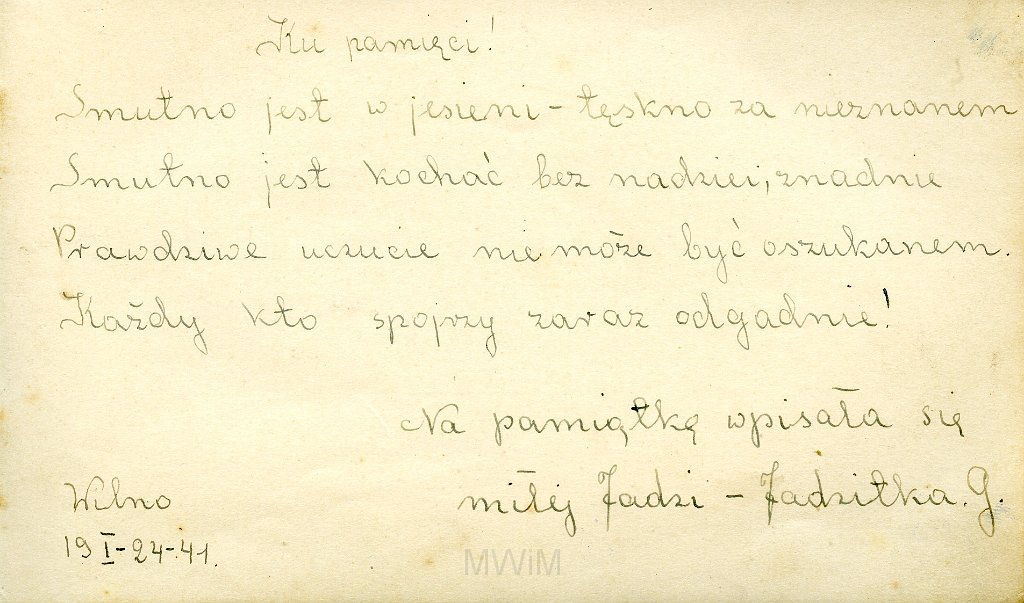 Ku pamięci!
Smutno jest w jesieni – tęskno za nieznanem
Smutno jest kochać bez nadziei, znadnie
Prawdziwe uczucie nie może być oszukanem.
Każdy kto spojrzy zaraz odgadnie!
Na pamiątkę wpisała się
miłej Jadzi – Jadziłka. G.
Wilno
19 I-24-41.
MWiM